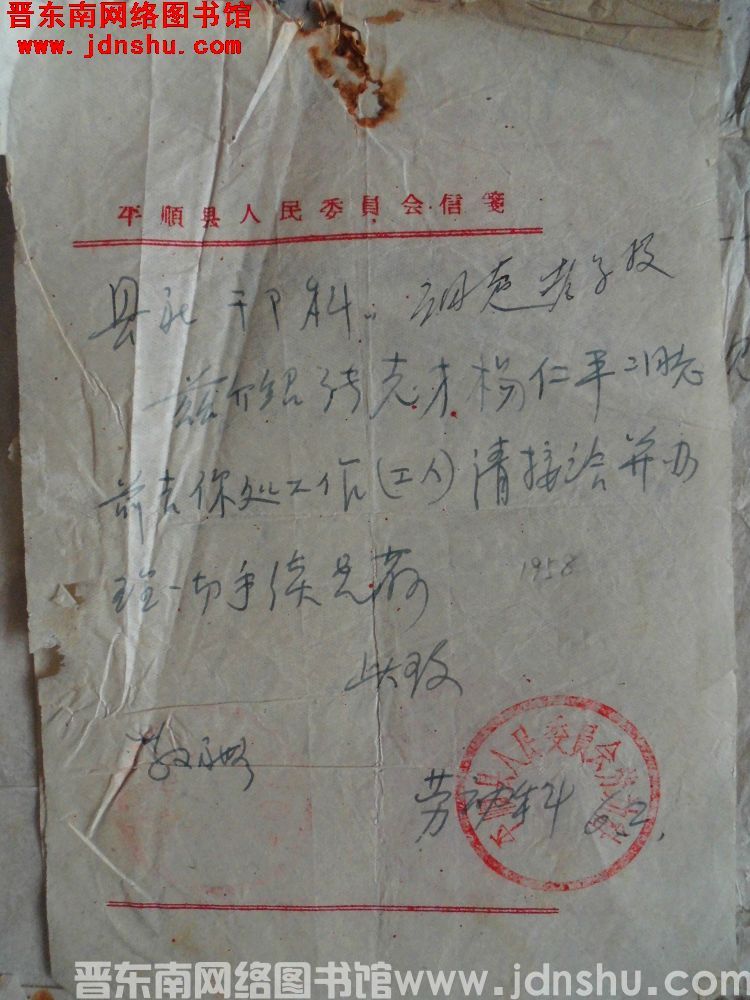 晋东南网络图书馆
www.jdnshu.com
平順县人民委員会信箋
县 干部科
兹介绍张志才杨仁平二同志
前去你处工作(工人)请接洽并办
理一切手续是荷
1958
此致
敬礼
劳动科 6.2.
平順县人民委員会
晋东南网络图书馆www.jdnshu.com